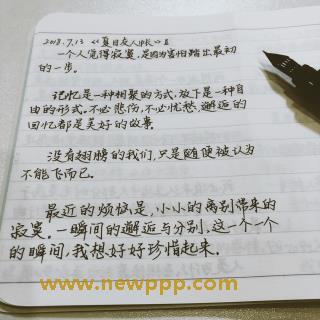 2018.7.13 《夏目友人帐》Ⅱ
一个人觉得寂寞,是因为害怕踏出最初
的一步。
记忆是一种相聚的方式,放下是一种自
由的形式。不必悲伤,不必忧愁,邂逅的
回忆都是美好的故事。
没有翅膀的我们,只是随便被认为
不能飞而已。
最近的烦恼是,小小的离别带来的
寂寞。一瞬间的邂逅与分别,这一个一个
的瞬间,我想好好珍惜起来。
www.newppp.com